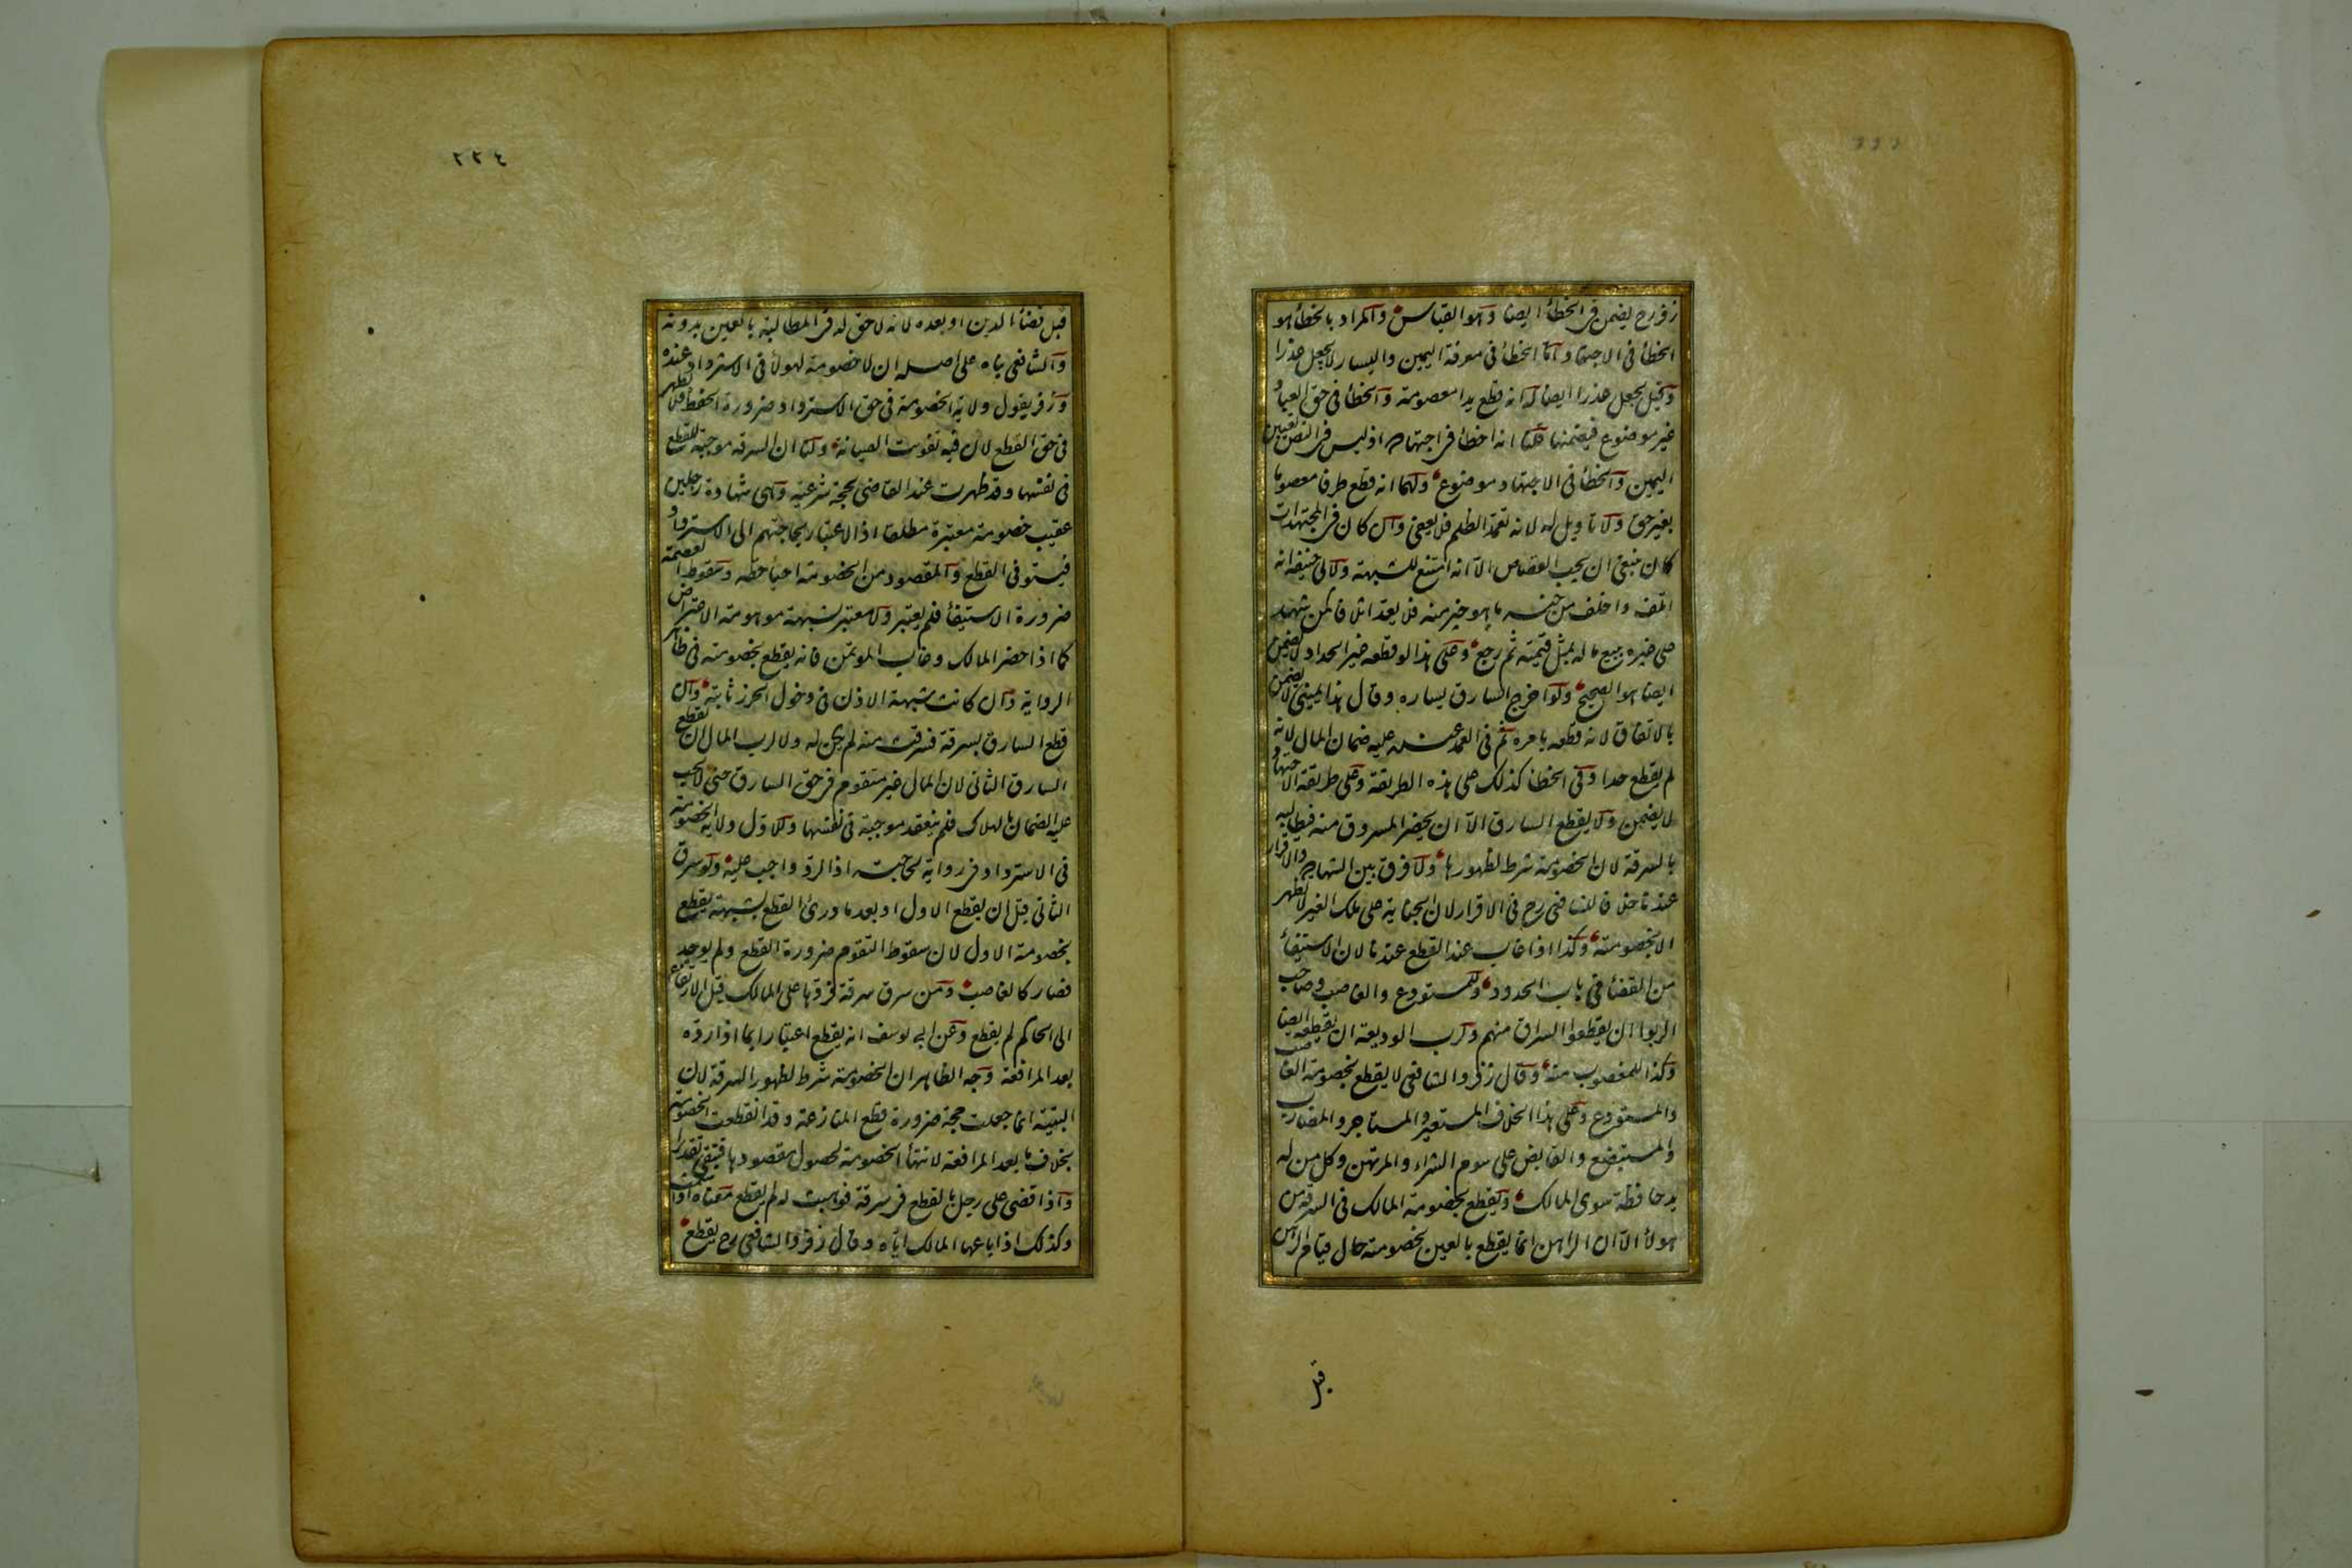 زفر رح يضمن فى الخطأ ايضا وهو القياس والمراد بالخطأ هو
الخطأ فى الاجتهاد واما الخطأ فى معرفة اليمين واليسار لا يجعل عذرا
وقيل يجعل عذرا ايضا له انه قطع يدا معصومة والخطأ فى حق العباد
غير موضوع فيضمنها قلنا انه اخطأ فى اجتهاده اذ ليس فى النص تعيين
اليمين والخطأ فى الاجتهاد موضوع ولهما انه قطع طرفا معصوما
بغير حق ولا تاويل له لانه تعمد الظلم فلا يعفى وان كان فى المجتهدات
كان ينبغى ان يجب القصاص الا انه امتنع للشبهة ولابى حنيفة انه
اتلف واخلف من جنسه ما هو خير منه فلا يعد اتلافا كمن شهد
على غيره ببيع ماله بمثل قيمته ثم رجع وعلى هذا لو قطعه غير الحداد لا يضمن
ايضا هو الصحيح ولو اخرج السارق يساره وقال هذا يمينى لا يضمن
بالاتفاق لانه قطعه بامره ثم فى العمد عنده عليه ضمان المال لانه
لم يقطع حدا وفى الخطأ كذلك على هذه الطريقة وعلى طريقة الاجتهاد
لا يضمن ولا يقطع السارق الا ان يحضر المسروق منه فيطالبه
بالسرقة لان الخصومة شرط لظهورها ولا فرق بين الشهادة والاقرار
عندنا خلافا للشافعى رح فى الاقرار لان الجناية على ملك الغير لا تظهر
الا بخصومته وكذا اذا غاب عند القطع عندنا لان الاستيفأ
من القضأ فى باب الحدود وللمستودع والغاصب وصاحب
الربوا ان يقطعوا السراق منهم ولرب الوديعة ان يقطعه ايضا
وكذا للمغصوب منه وقال زفر والشافعى لا يقطع بخصومة الغاصب
والمستودع وعلى هذا الخلاف المستعير والمستاجر والمضارب
والمستبضع والقابض على سوم الشراء والمرتهن وكل من له
يد حافظة سوى المالك ويقطع بخصومة المالك فى السرقة من
هولأ الا ان الراهن انما يقطع بالعين بخصومته حال قيام الرهن
قبل
٢٢٤
قبل قضأ الدين او بعده لانه لا حق له فى المطالبة بالعين بدونه
والشافعى بناه على اصله ان لا خصومة لهولأ فى الاسترداد عنده
وزفر يقول ولاية الخصومة فى حق الاسترداد ضرورة الحفظ فلا تظهر
فى حق القطع لان فيه تفويت الصيانة ولنا ان السرقة موجبة للقطع
فى نفسها وقد ظهرت عند القاضى بحجة شرعية وهى شهادة رجلين
عقيب خصومة معتبرة مطلقا اذ الاعتبار لحاجتهم الى الاسترداد
فيستوفى القطع والمقصود من الخصومة احيأ حقه وسقوط العصمة
ضرورة الاستيفأ فلم يعتبر ولا معتبر بشبهة موهومة الاعتراض
كما اذا حضر المالك وغاب المؤتمن فانه يقطع بخصومته فى ظاهر
الرواية وان كانت شبهة الاذن فى دخول الحرز ثابتة وان
قطع السارق بسرقة فسرقت منه لم يكن له ولا لرب المال ان يقطع
السارق الثانى لان المال غير متقوم فى حق السارق حتى لا يجب
عليه الضمان بالهلاك فلم ينعقد موجبة فى نفسها وللاول ولاية الخصومة
فى الاسترداد فى رواية لحاجته اذ الرد واجب عليه ولو سرق
الثانى قبل ان يقطع الاول او بعد ما درئ القطع بشبهة يقطع
بخصومة الاول لان سقوط التقوم ضرورة القطع ولم يوجد
فصار كالغاصب ومن سرق سرقة فردها على المالك قبل الارتفاع
الى الحاكم لم يقطع وعن ابى يوسف انه يقطع اعتبارا بما اذا رده
بعد المرافعة وجه الظاهر ان الخصومة شرط لظهور السرقة لان
البينة انما جعلت حجة ضرورة قطع المنازعة وقد انقطعت الخصومة
بخلاف ما بعد المرافعة لانتهأ الخصومة لحصول مقصودها فتبقى تقديرا
واذا قضى على رجل بالقطع فى سرقة فوهبت له لم يقطع معناه اذا سلمت
وكذلك اذا باعها المالك اياه وقال زفر والشافعى رح يقطع